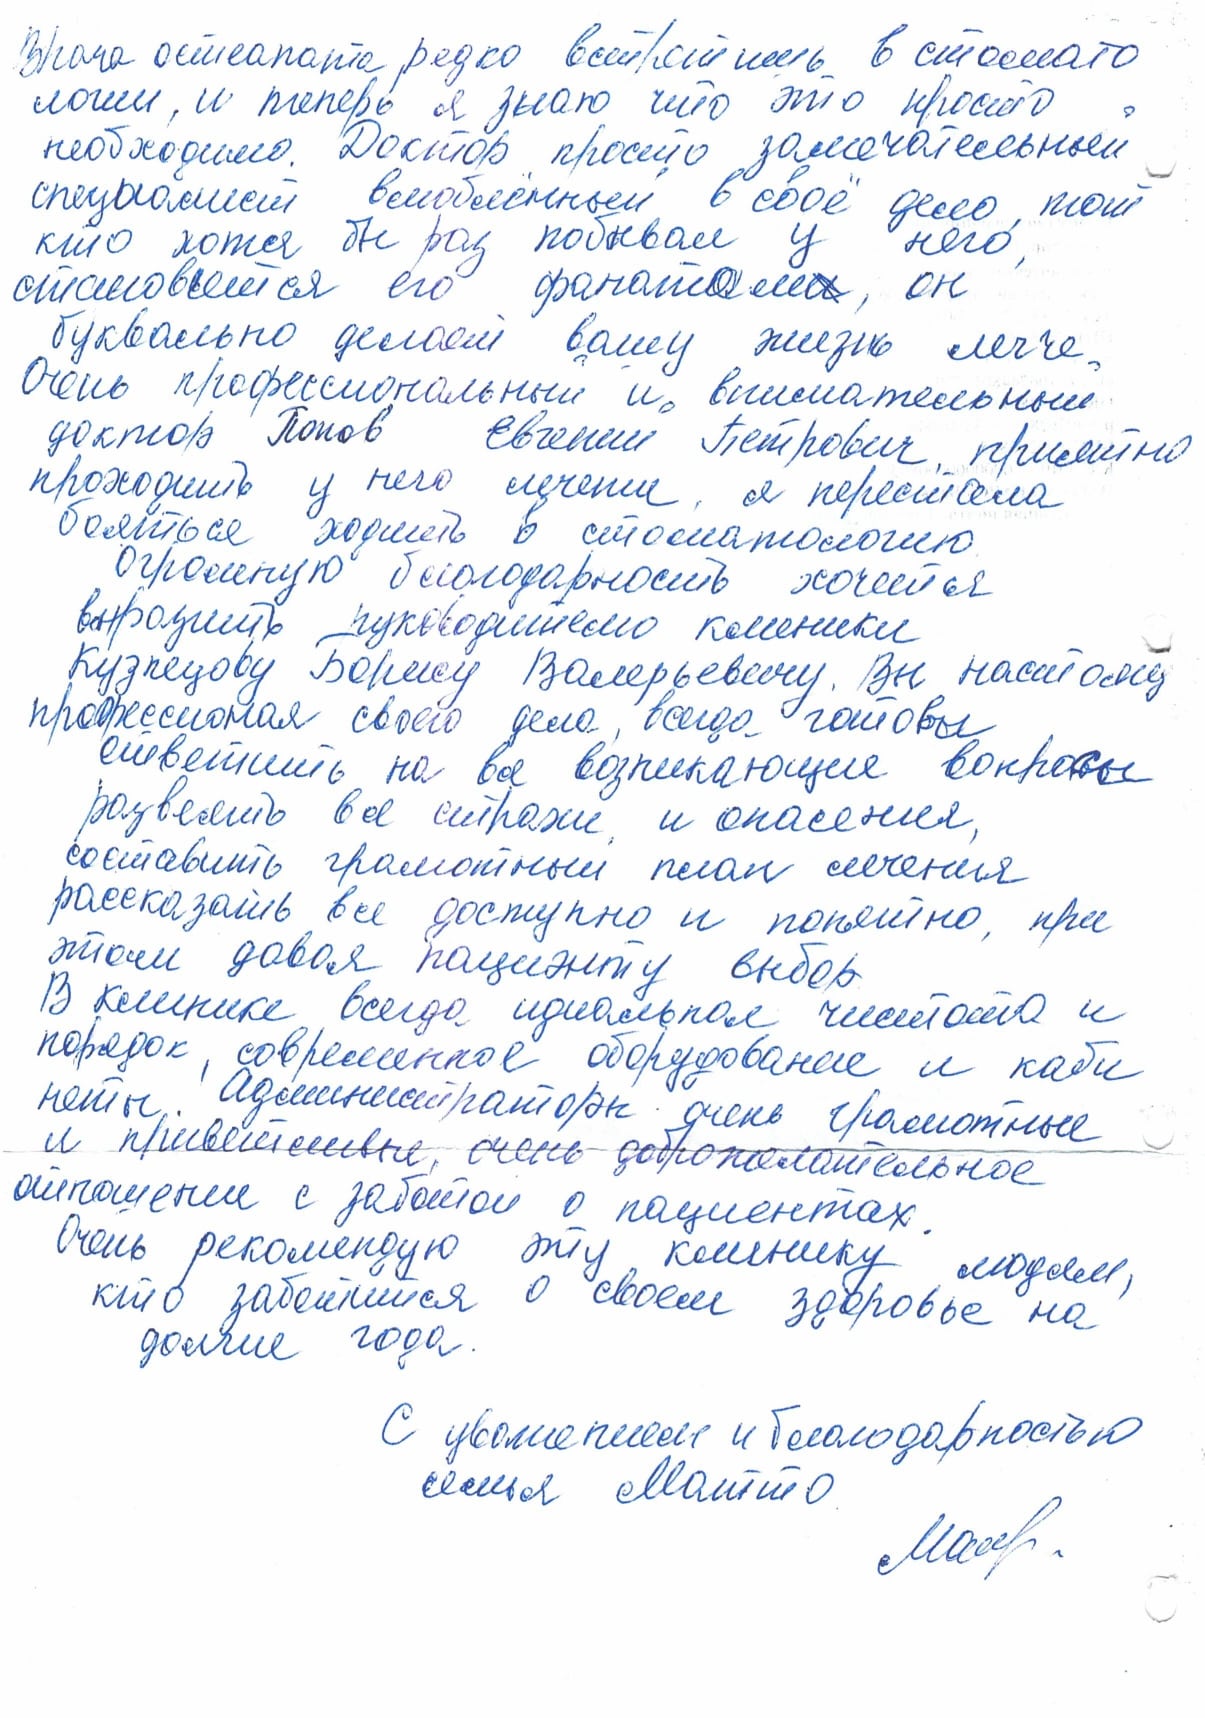 Врача остеапата редко встретишь в стомато
логии, и теперь я знаю что это просто
необходимо. Доктор просто замечательный
специалист влюблённый в своё дело, тот
кто хотя бы раз побывал у него,
становится его фанатом, он
буквально делает вашу жизнь легче.
Очень профессиональный и внимательный
доктор Попов Евгений Петрович, приятно
проходить у него лечение, я перестала
бояться ходить в стоматологию
Огромную благодарность хочется
выразить руководителю клиники
Кузнецову Борису Валерьевичу. Вы настоящ
професcионал своего дела, всегда готовы
ответить на все возникающие вопросы
развеять все страхи и опасения,
составить грамотный план лечения
рассказать все доступно и понятно, при
этом давая пациэнту выбор
В клинике всегда идиальная чистота и
порядок, современное оборудование и каби
неты. Администраторы очень грамотные
и приветливые, очень доброжелательное
отношение с заботой о пациентах.
Очень рекомендую эту клинику людям,
кто заботится о своем здоровье на
долгие года.
С уважением и благодарностью
семья Матто